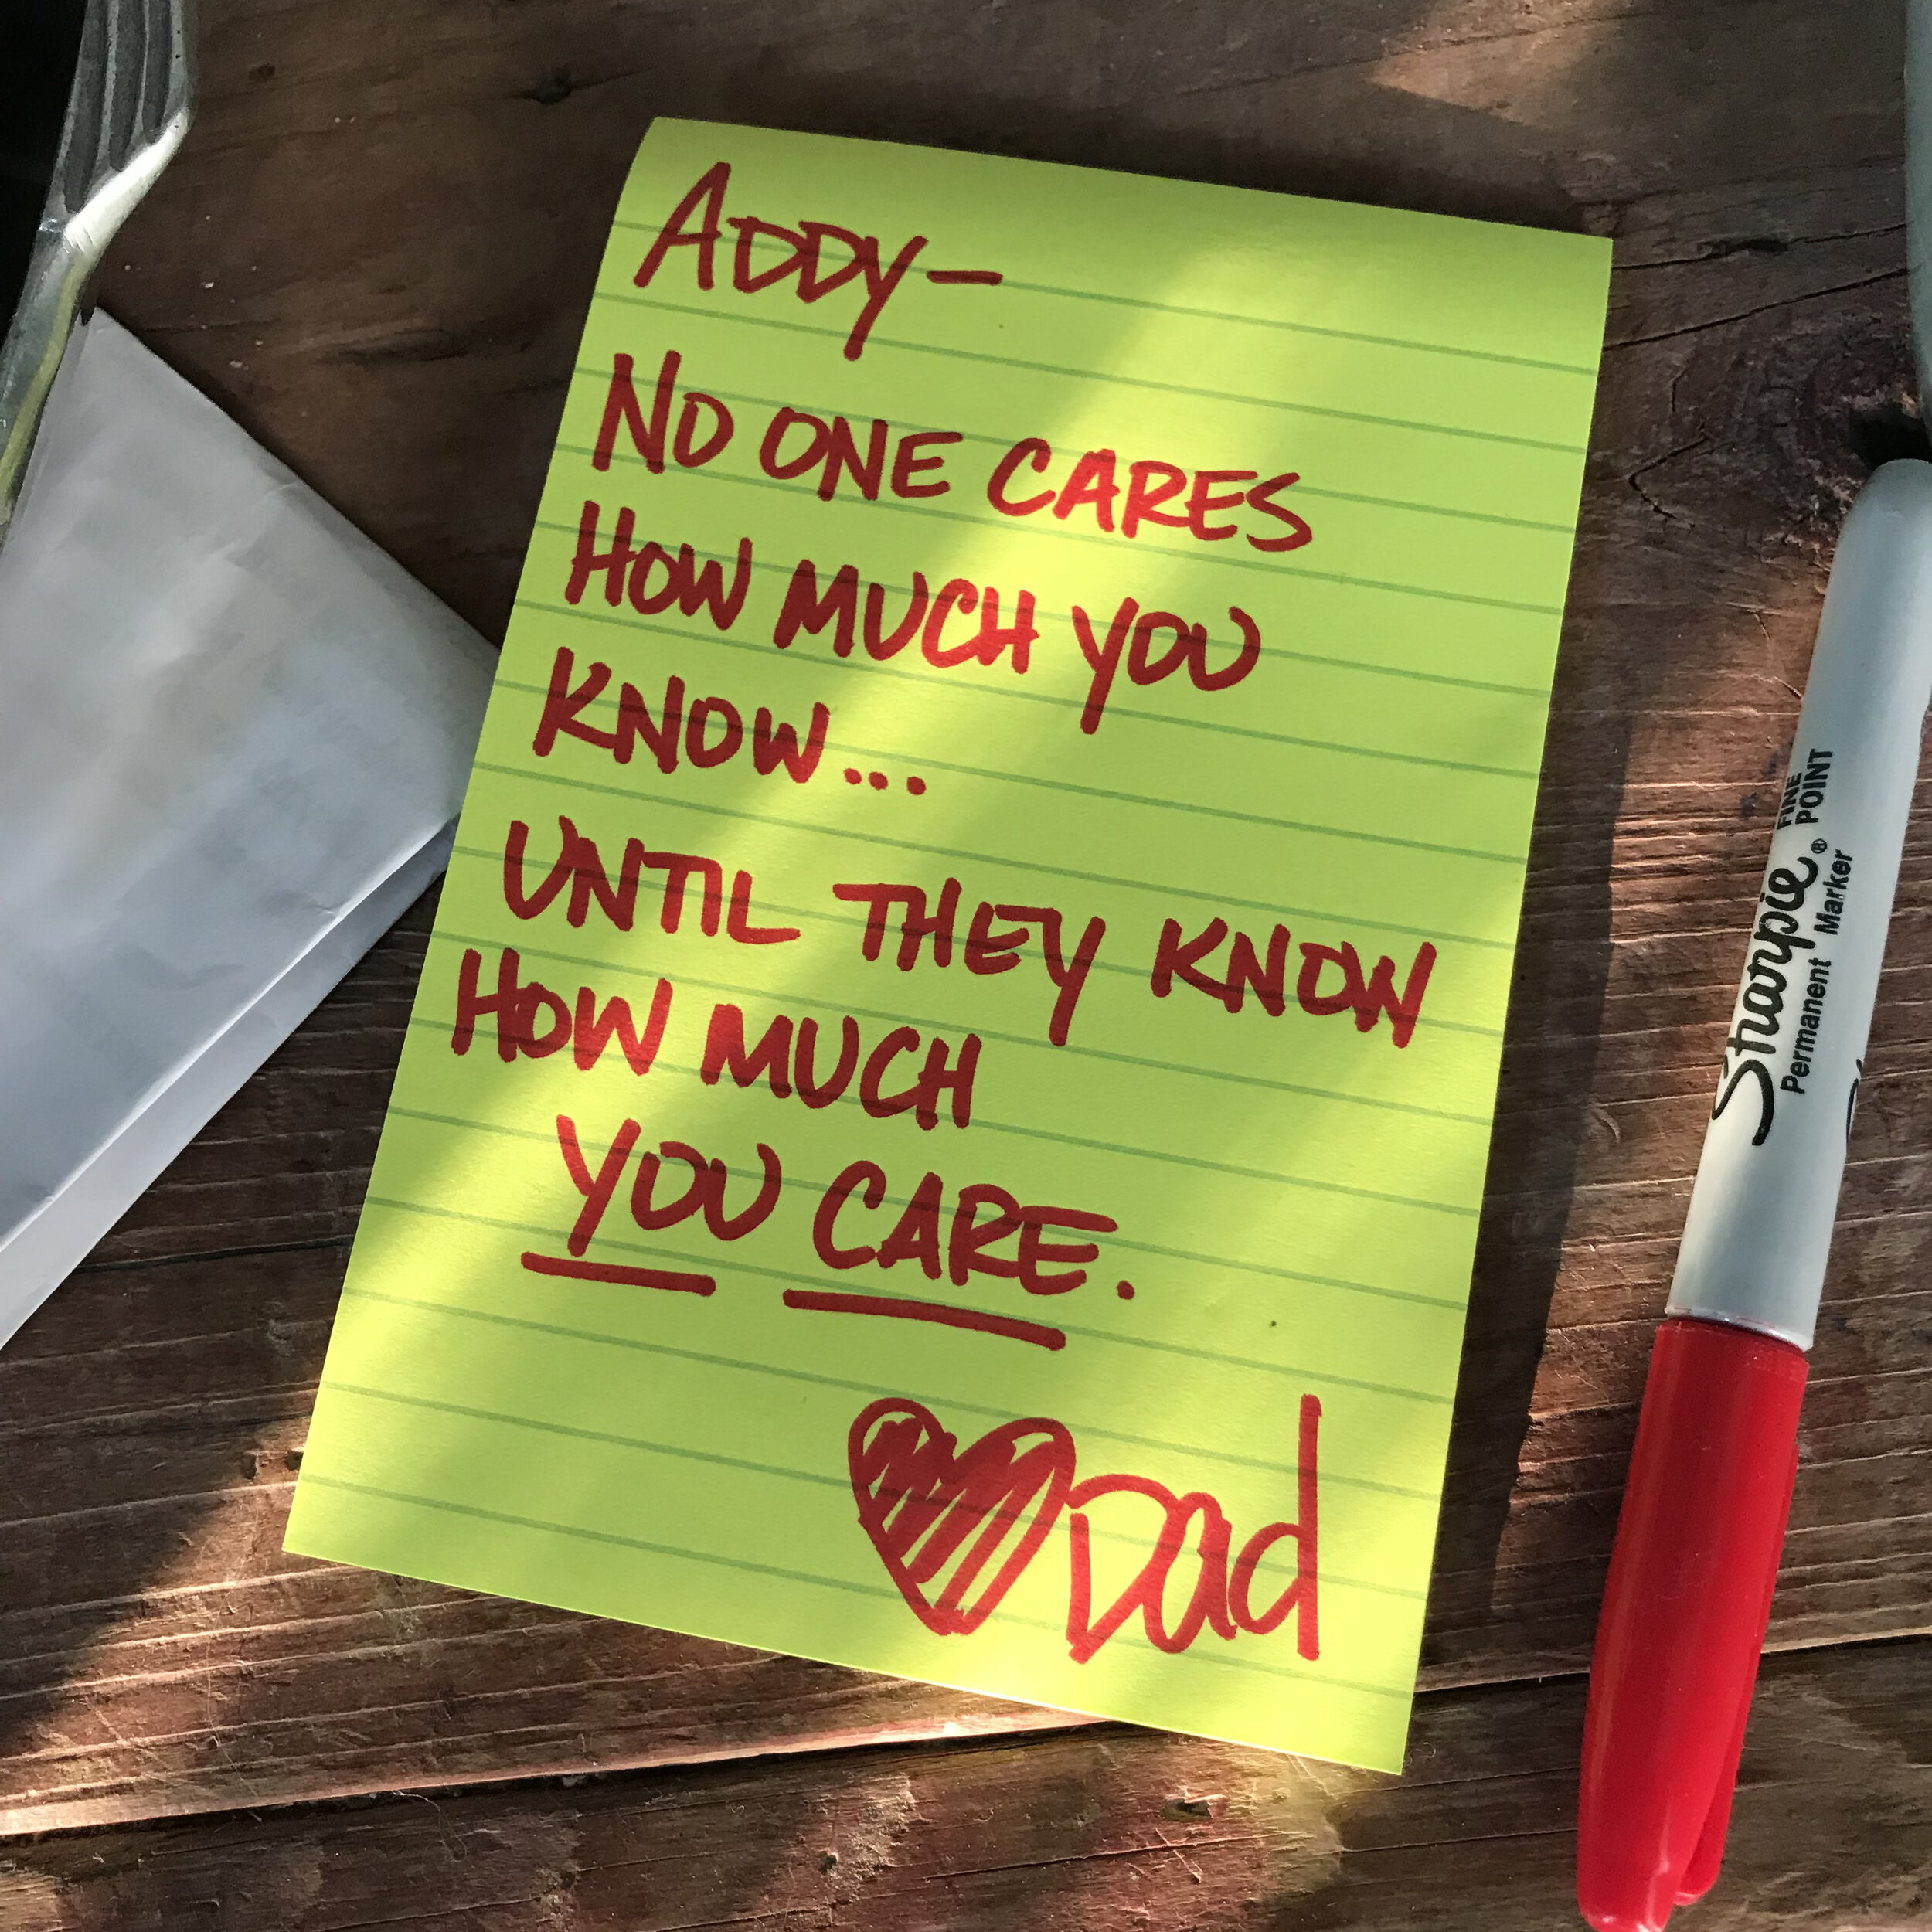 ADDY—
NO ONE CARES
HOW MUCH YOU
KNOW...
UNTIL THEY KNOW
HOW MUCH
YOU CARE.
Dad
Sharpie®
FINE
POINT
Permanent Marker